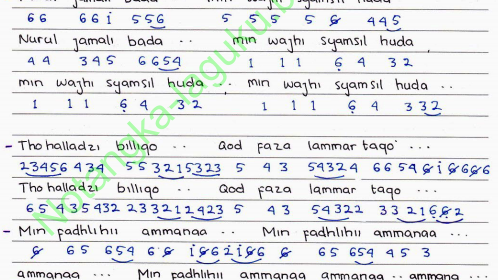 6 6 6 6 i 5 5 6 5 5 5 6 4 4 5
Nurul jamali bada .. min wajhi syamsil huda
4 4 3 4 5 6 6 5 4 1 1 1 6 4 3 2
min wajhi syamsil huda .. min wajhi syamsil huda ..
1 1 1 6 4 3 2 1 1 1 6 4 3 3 2
- Tho halladzi billiqo .. Qod faza lammar taqo ...
2 3 4 5 6 4 3 4 5 5 3 2 1 5 3 2 3 5 4 3 5 4 3 2 4 6 6 5 4 6 i 6 6 6 6
Tho halladzi billiqo .. Qod faza lammar taqo ...
6 5 4 3 5 4 3 2 2 3 3 2 1 2 4 2 3 5 4 3 5 4 3 2 2 3 3 2 1 6 6 2
- Min fadhlihii ammanaa .. Min fadhlihii ammanaa ...
6 6 5 6 5 4 6 6 i 6 6 2 i 6 6 6 6 5 6 5 4 4 5 3
ammanaa ... Min fadhlihii ammanaa ammanaa .. ammana ...
Notangka-laguku.b